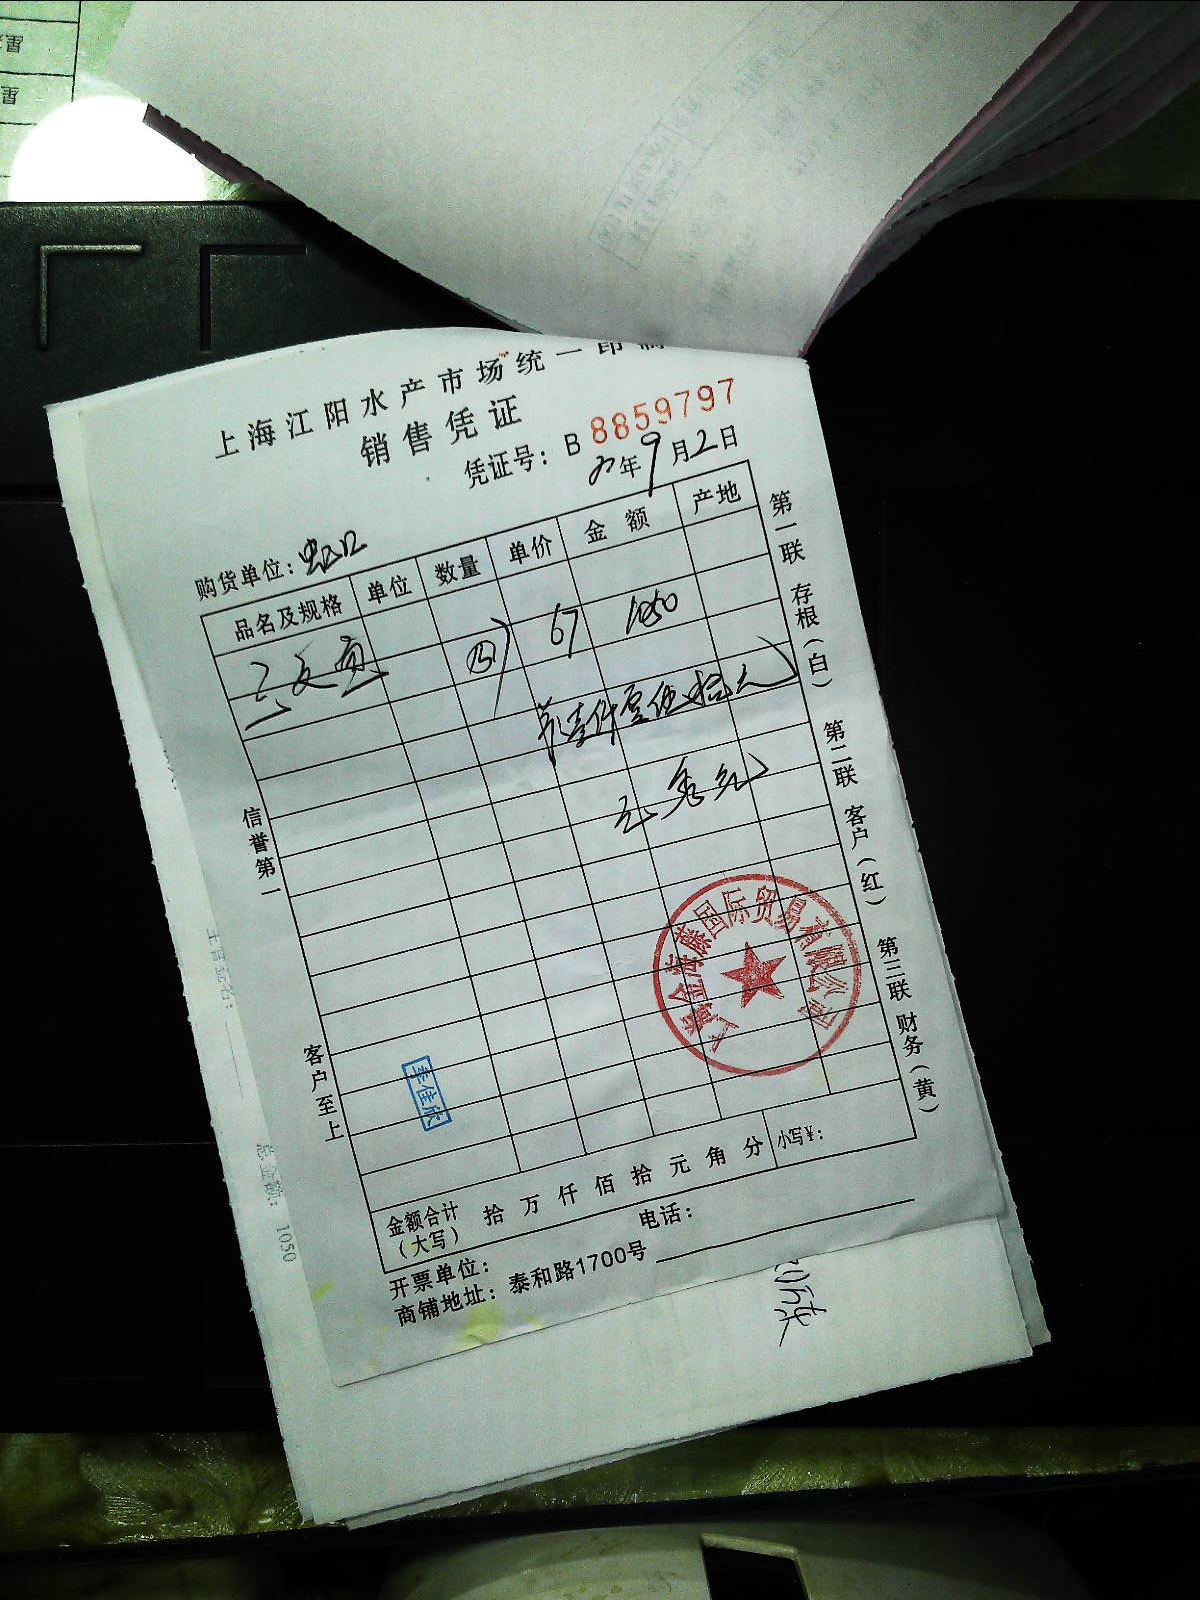 上海江阳水产市场统一印制
销售凭证
凭证号: B 8859797
年9月2日
购货单位: 虹口
品名及规格 单位 数量 单价 金额 产地
三文鱼 67 1050
壹仟零伍拾元
第一联 存根(白) 第二联 客户(红) 第三联 财务(黄)
信誉第一
客户至上
国际贸易有限公司
李佳欣
金额合计(大写) 拾 万 仟 佰 拾 元 角 分 小写¥:
开票单位: 电话:
商铺地址: 泰和路1700号
总金额: 1050